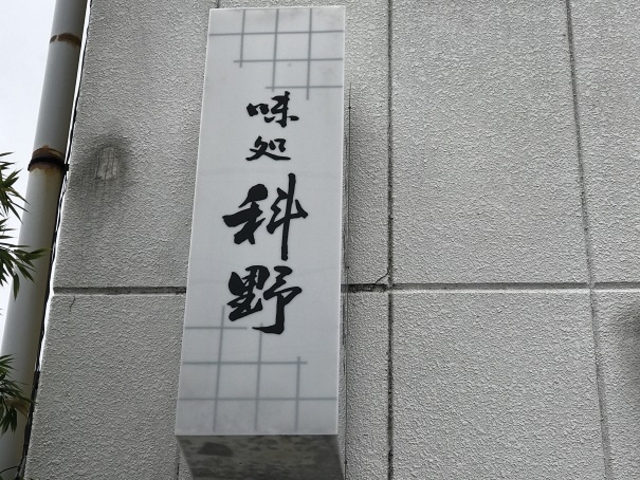 味処
科野